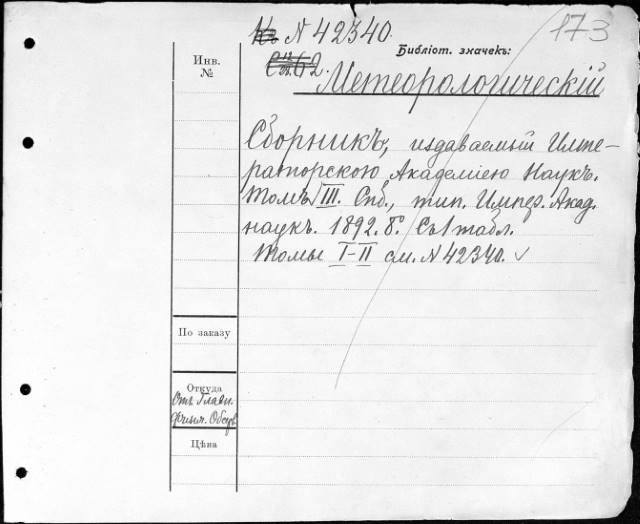 К № 42340.
173
Библіот. значекъ:
Инв.
№
62.
Метеорологическій
Сборникъ, издаваемый Импе-
раторскою Академіею Наукъ.
Томъ III. Спб., тип. Импер. Акад.
наукъ. 1892. 8°. Съ 1 табл.
Томы I-II см. № 42340. ✓
По заказу
Откуда
Отъ Главн.
Физич. Обсер.
Цѣна